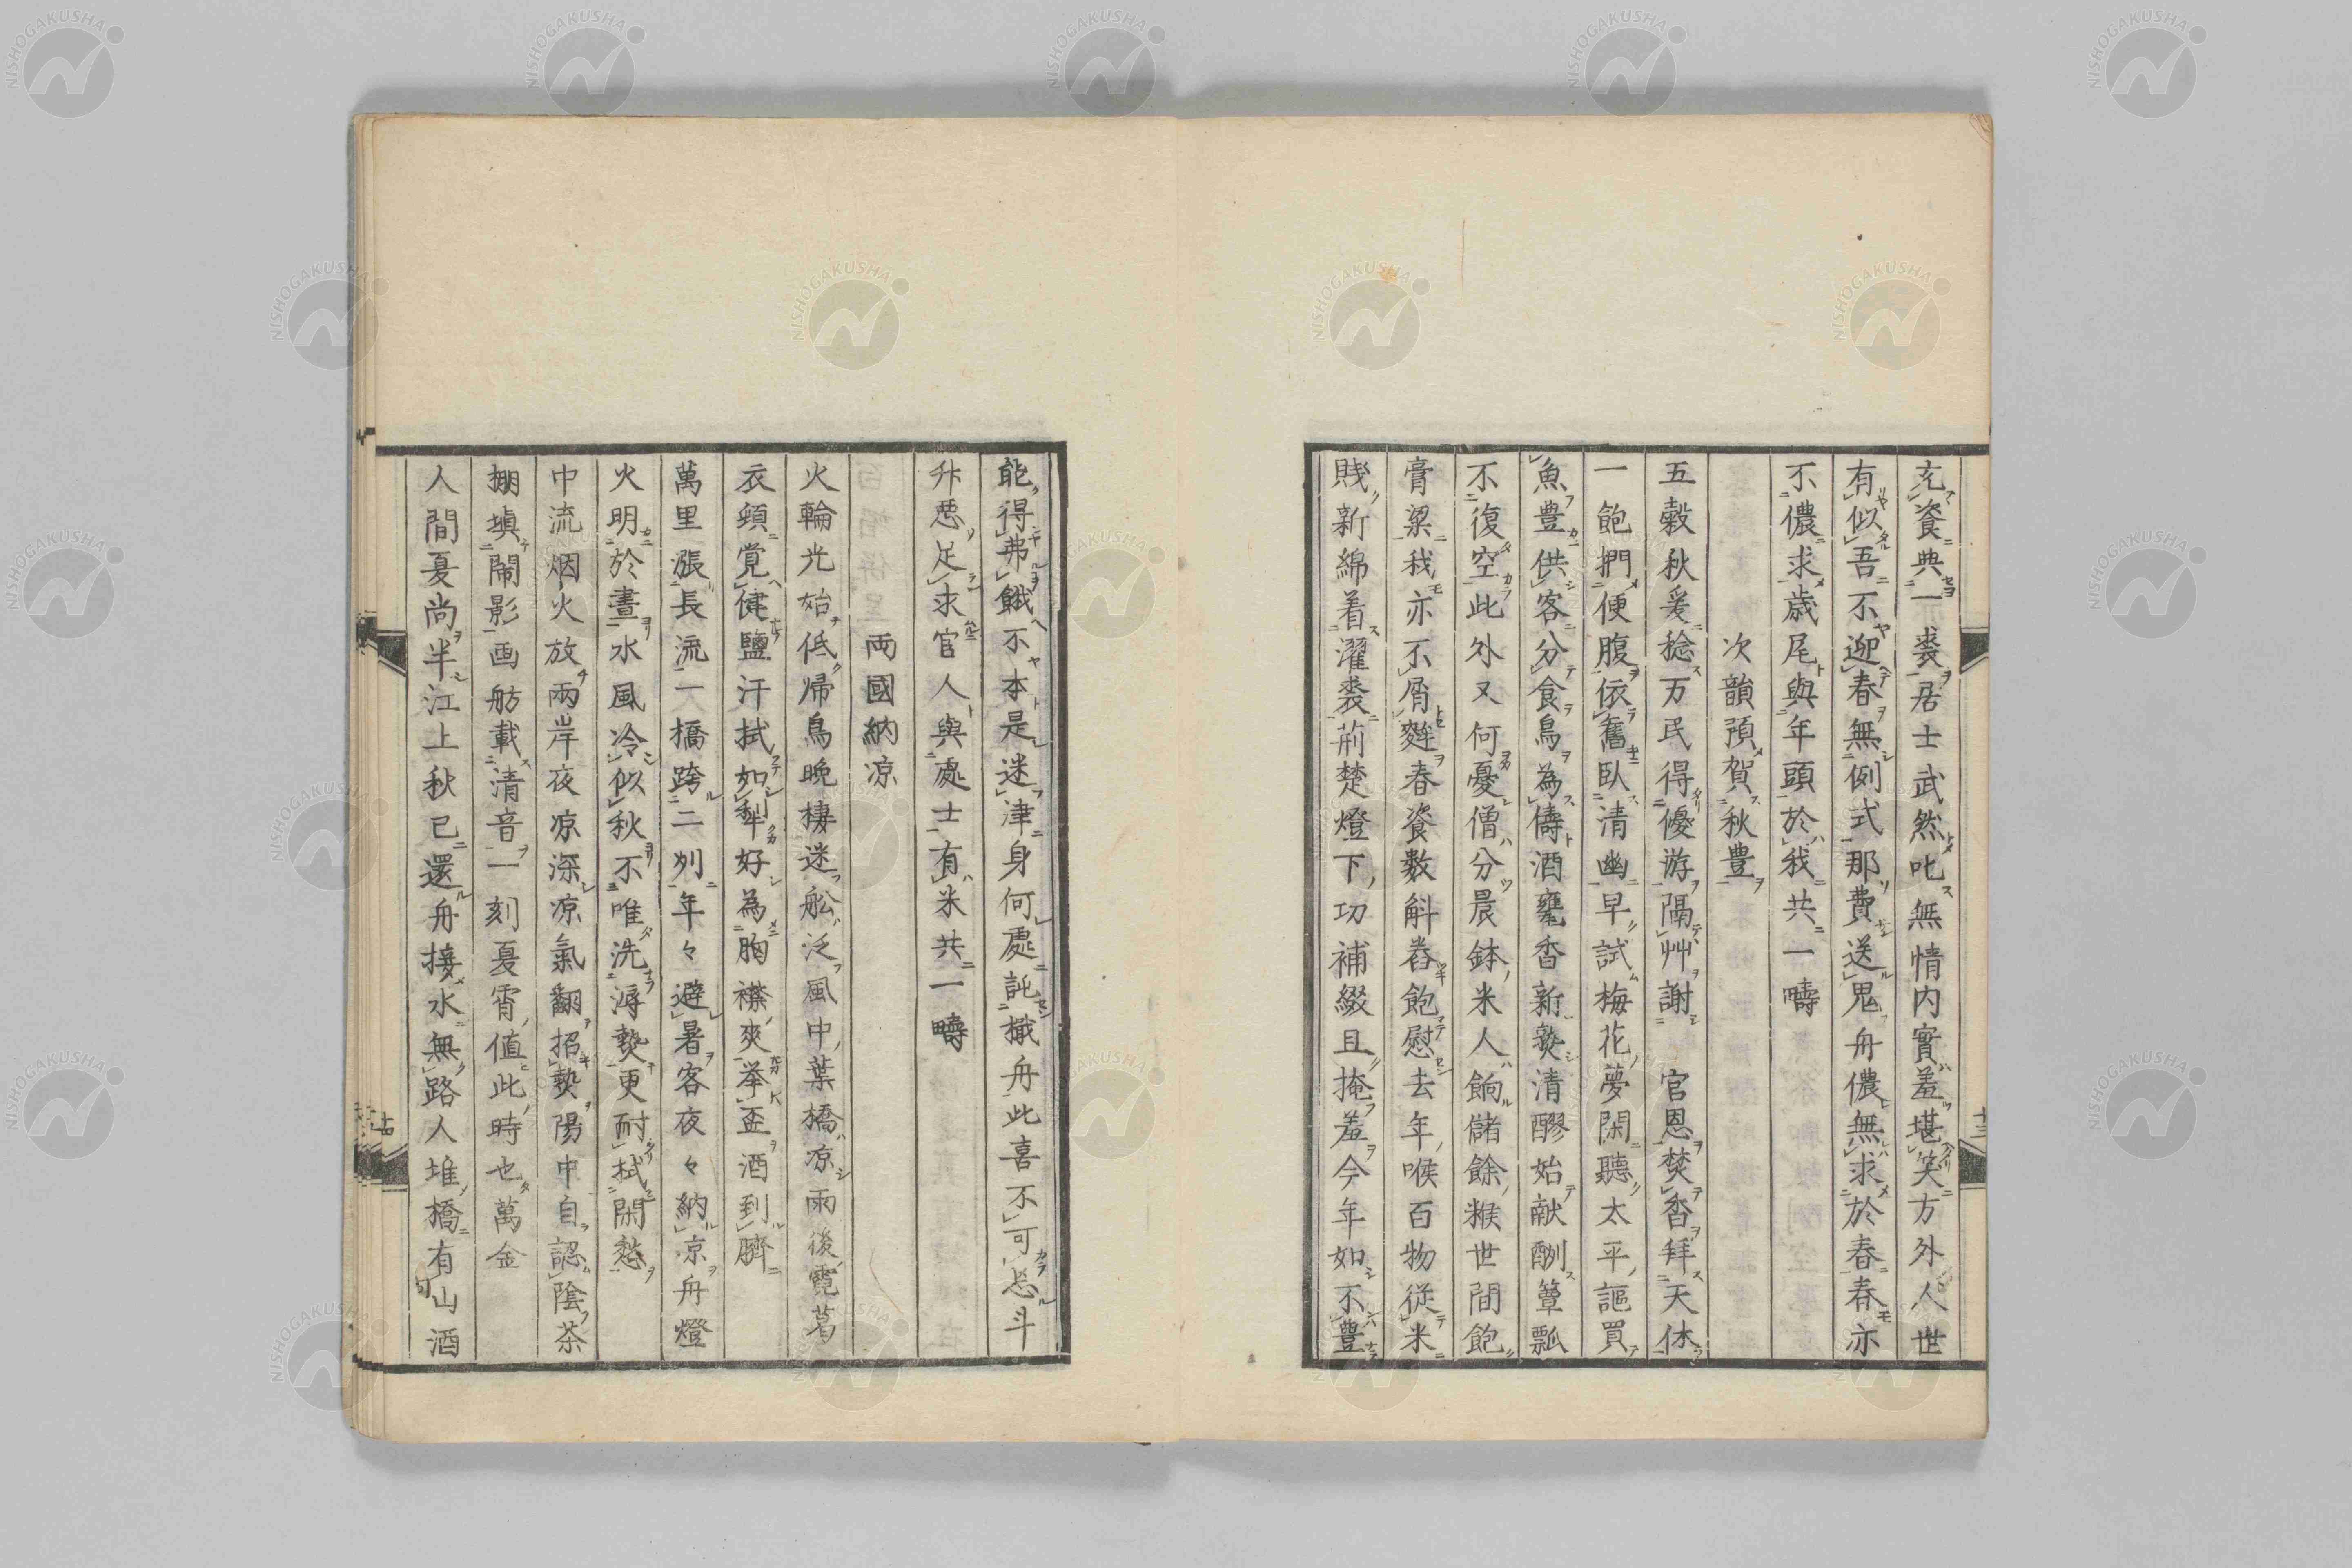 充資典一裘居士武然叱無情内實羞堪笑方外人世
有似吾不迎春無例式那費送鬼舟儂無求於春春亦
不儂求歳尾與年頭於我共一疇
次韻預賀秋豊
五穀秋爰捻万民得優游隔艸謝 官恩焚香拜天休
一飽捫便腹依舊臥清幽早試梅花夢閑聽太平謳買
魚豊供客分食鳥為儔酒甕香新熟清醪始献酬簞瓢
不復空此外又何憂僧分晨鉢米人餉儲餘糇世間飽
膏粱我亦不屑麰春資数斛舂飽慰去年喉百物従米
賤新綿着濯裘荊楚燈下功補綴且掩羞今年如不豊
能得弗餓不本是迷津身何處託檥舟此喜不可忘斗
升悉足求官人與處士有米共一疇
両國納凉
火輪光始低帰鳥晩棲迷舩泛風中葉橋凉雨後霓葛
衣頚覚健鹽汗拭如犁好為胸襟爽挙盃酒到臍
萬里漲長流一橋跨二列年々避暑客夜々納凉舟燈
火明於晝水風冷似秋不唯洗溽熱更耐拭閑愁
中流烟火放兩岸夜凉深凉氣翻招熱陽中自認陰茶
棚塡鬧影画舫載清音一刻夏宵値此時也萬金
人間夏尚半江上秋已還舟接水無路人堆橋有山酒
十三
十四
NISHOGAKUSHA